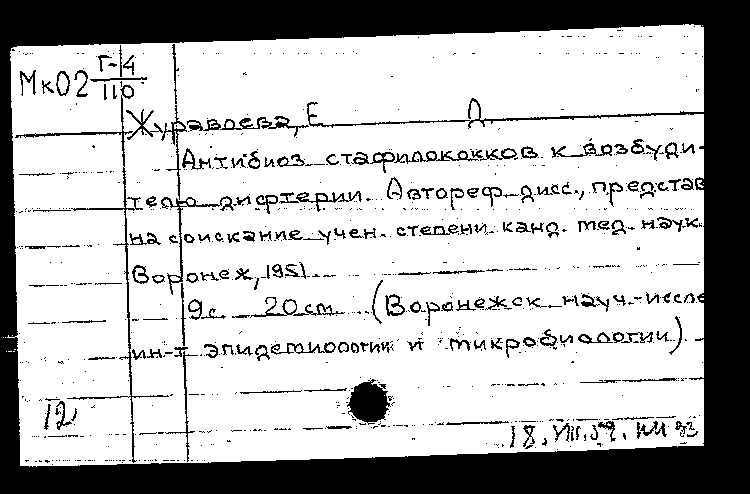 МкО2 Г-4
110
Журавлева, Е Д.
Антибиоз стафилококков к возбуди-
телю дифтерии. Автореф. дисс., представ
на соискание учен. степени канд. мед. наук.
Воронеж, 1951
9с. 20см. (Воронежск. науч.-иссле
ин-т эпидемиологии и микробиологии)
12
18.VIII.